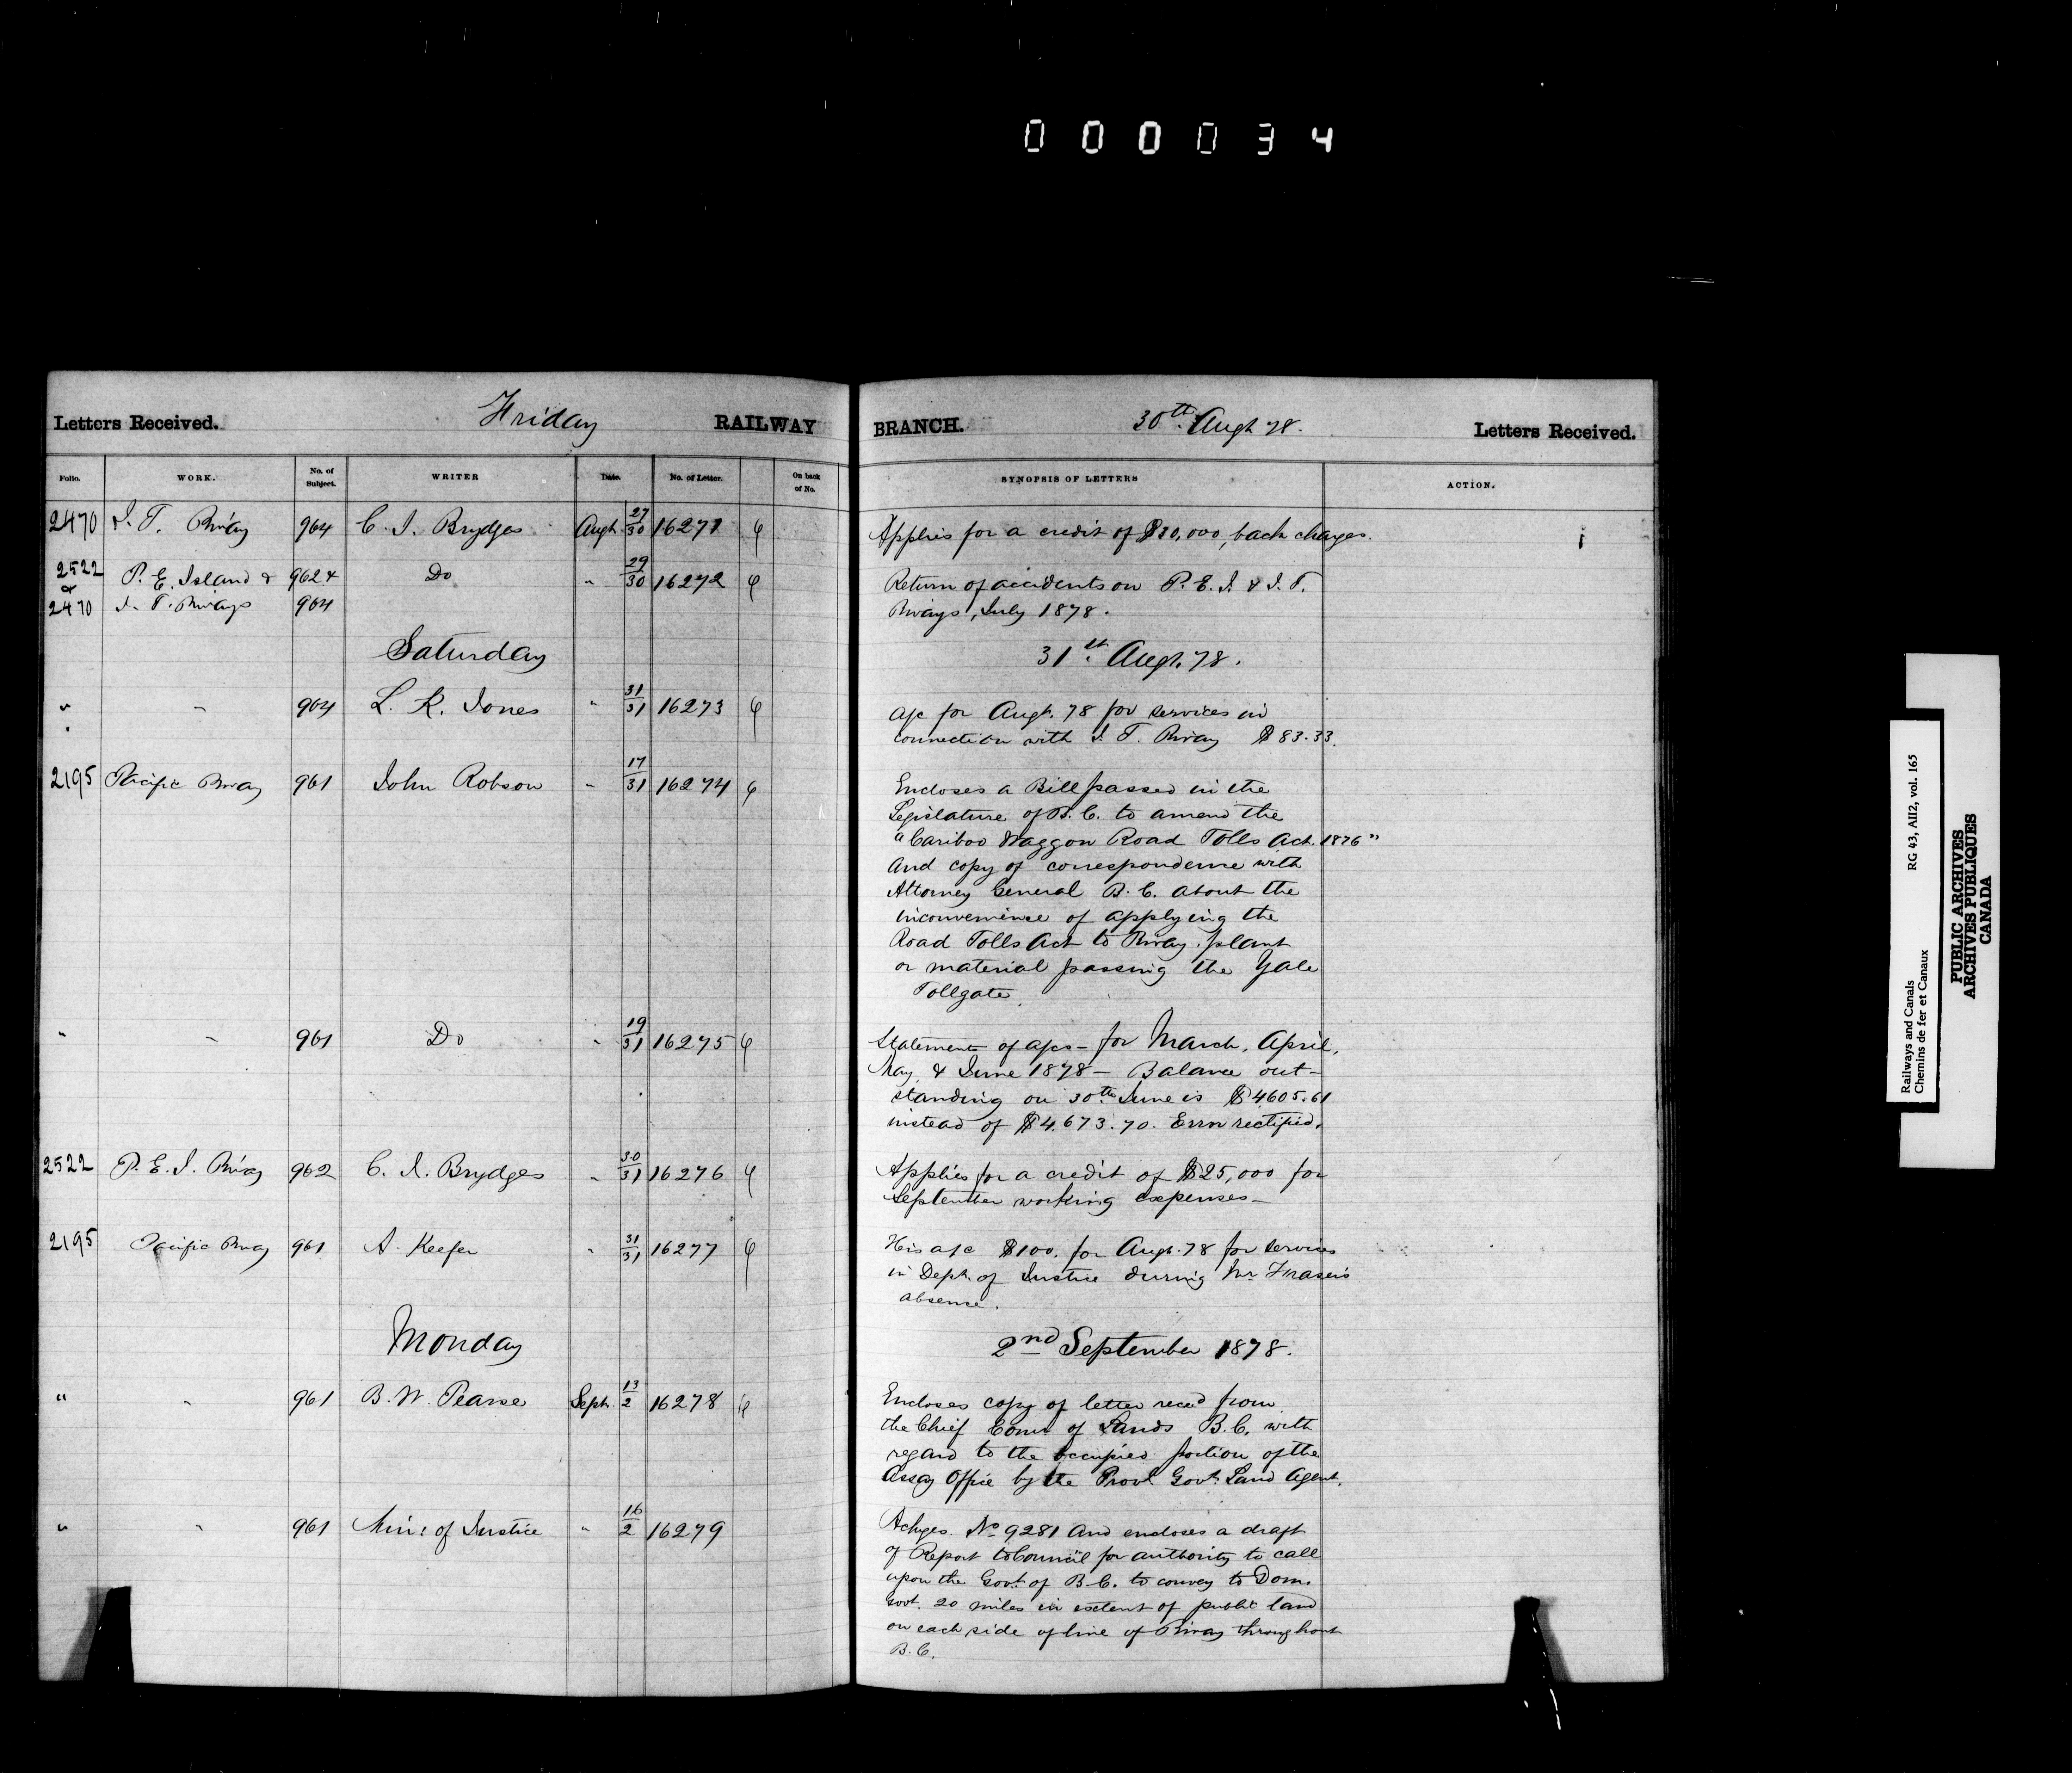 000034
Letters Received. Friday RAILWAY BRANCH. 30th Augt 78. Letters Received.
Folio. WORK. No. of Subject. WRITER Date. No. of Letter. On back of No. SYNOPSIS OF LETTERS ACTION.
2470 I. T. Rway 964 C. J. Brydges Augt 27/30 16271 Applies for a credit of $30,000, back charges.
2522 P. E. Island & 962 & Do " 29/30 16272 Return of accidents on P. E. I. & I. T.
& 2470 I. T. Rways 964 Rways, July 1878.
Saturday 31st Augt. 78.
" " 964 L. K. Jones " 31/31 16273 a/c for Augt. 78 for services in
connection with I. T. Rway $83.33.
2195 Pacific Rway 961 John Robson " 17/31 16274 Encloses a Bill passed in the
Legislature of B. C. to amend the
"Cariboo Waggon Road Tolls Act. 1876"
And copy of correspondence with
Attorney General B. C. about the
inconvenience of applying the
Road Tolls Act to Rway plant
or material passing the Yale
Tollgate.
" " 961 Do " 19/31 16275 Statements of a/cs - for March, April,
May, & June 1878 - Balance out-
standing on 30th June is $4605.61
instead of $4.673.70. Error rectified.
2522 P. E. I. Rway 962 C. J. Brydges " 30/31 16276 Applies for a credit of $25,000 for
September working expenses -
2195 Pacific Rway 961 A. Keefer " 31/31 16277 His a/c $100. for Augt. 78 for services
in Dept. of Justice during Mr Fraser's
absence.
Monday 2nd September 1878.
" " 961 B. W. Pearse Sept. 13/2 16278 Encloses copy of letter recd from
the Chief Comr of Lands B. C. with
regard to the occupied portion of the
Assay Office by the Provl Govt. Land Agent.
" " 961 Minr of Justice " 16/2 16279 Ackges. No 9281 And encloses a draft
of Report to Council for authority to call
upon the Govt of B. C. to convey to Dom.
Govt. 20 miles in extent of public land
on each side of line of Rway throughout
B. C.
Railways and Canals RG 43, AII2, vol. 165
Chemins de fer et Canaux
PUBLIC ARCHIVES
ARCHIVES PUBLIQUES
CANADA